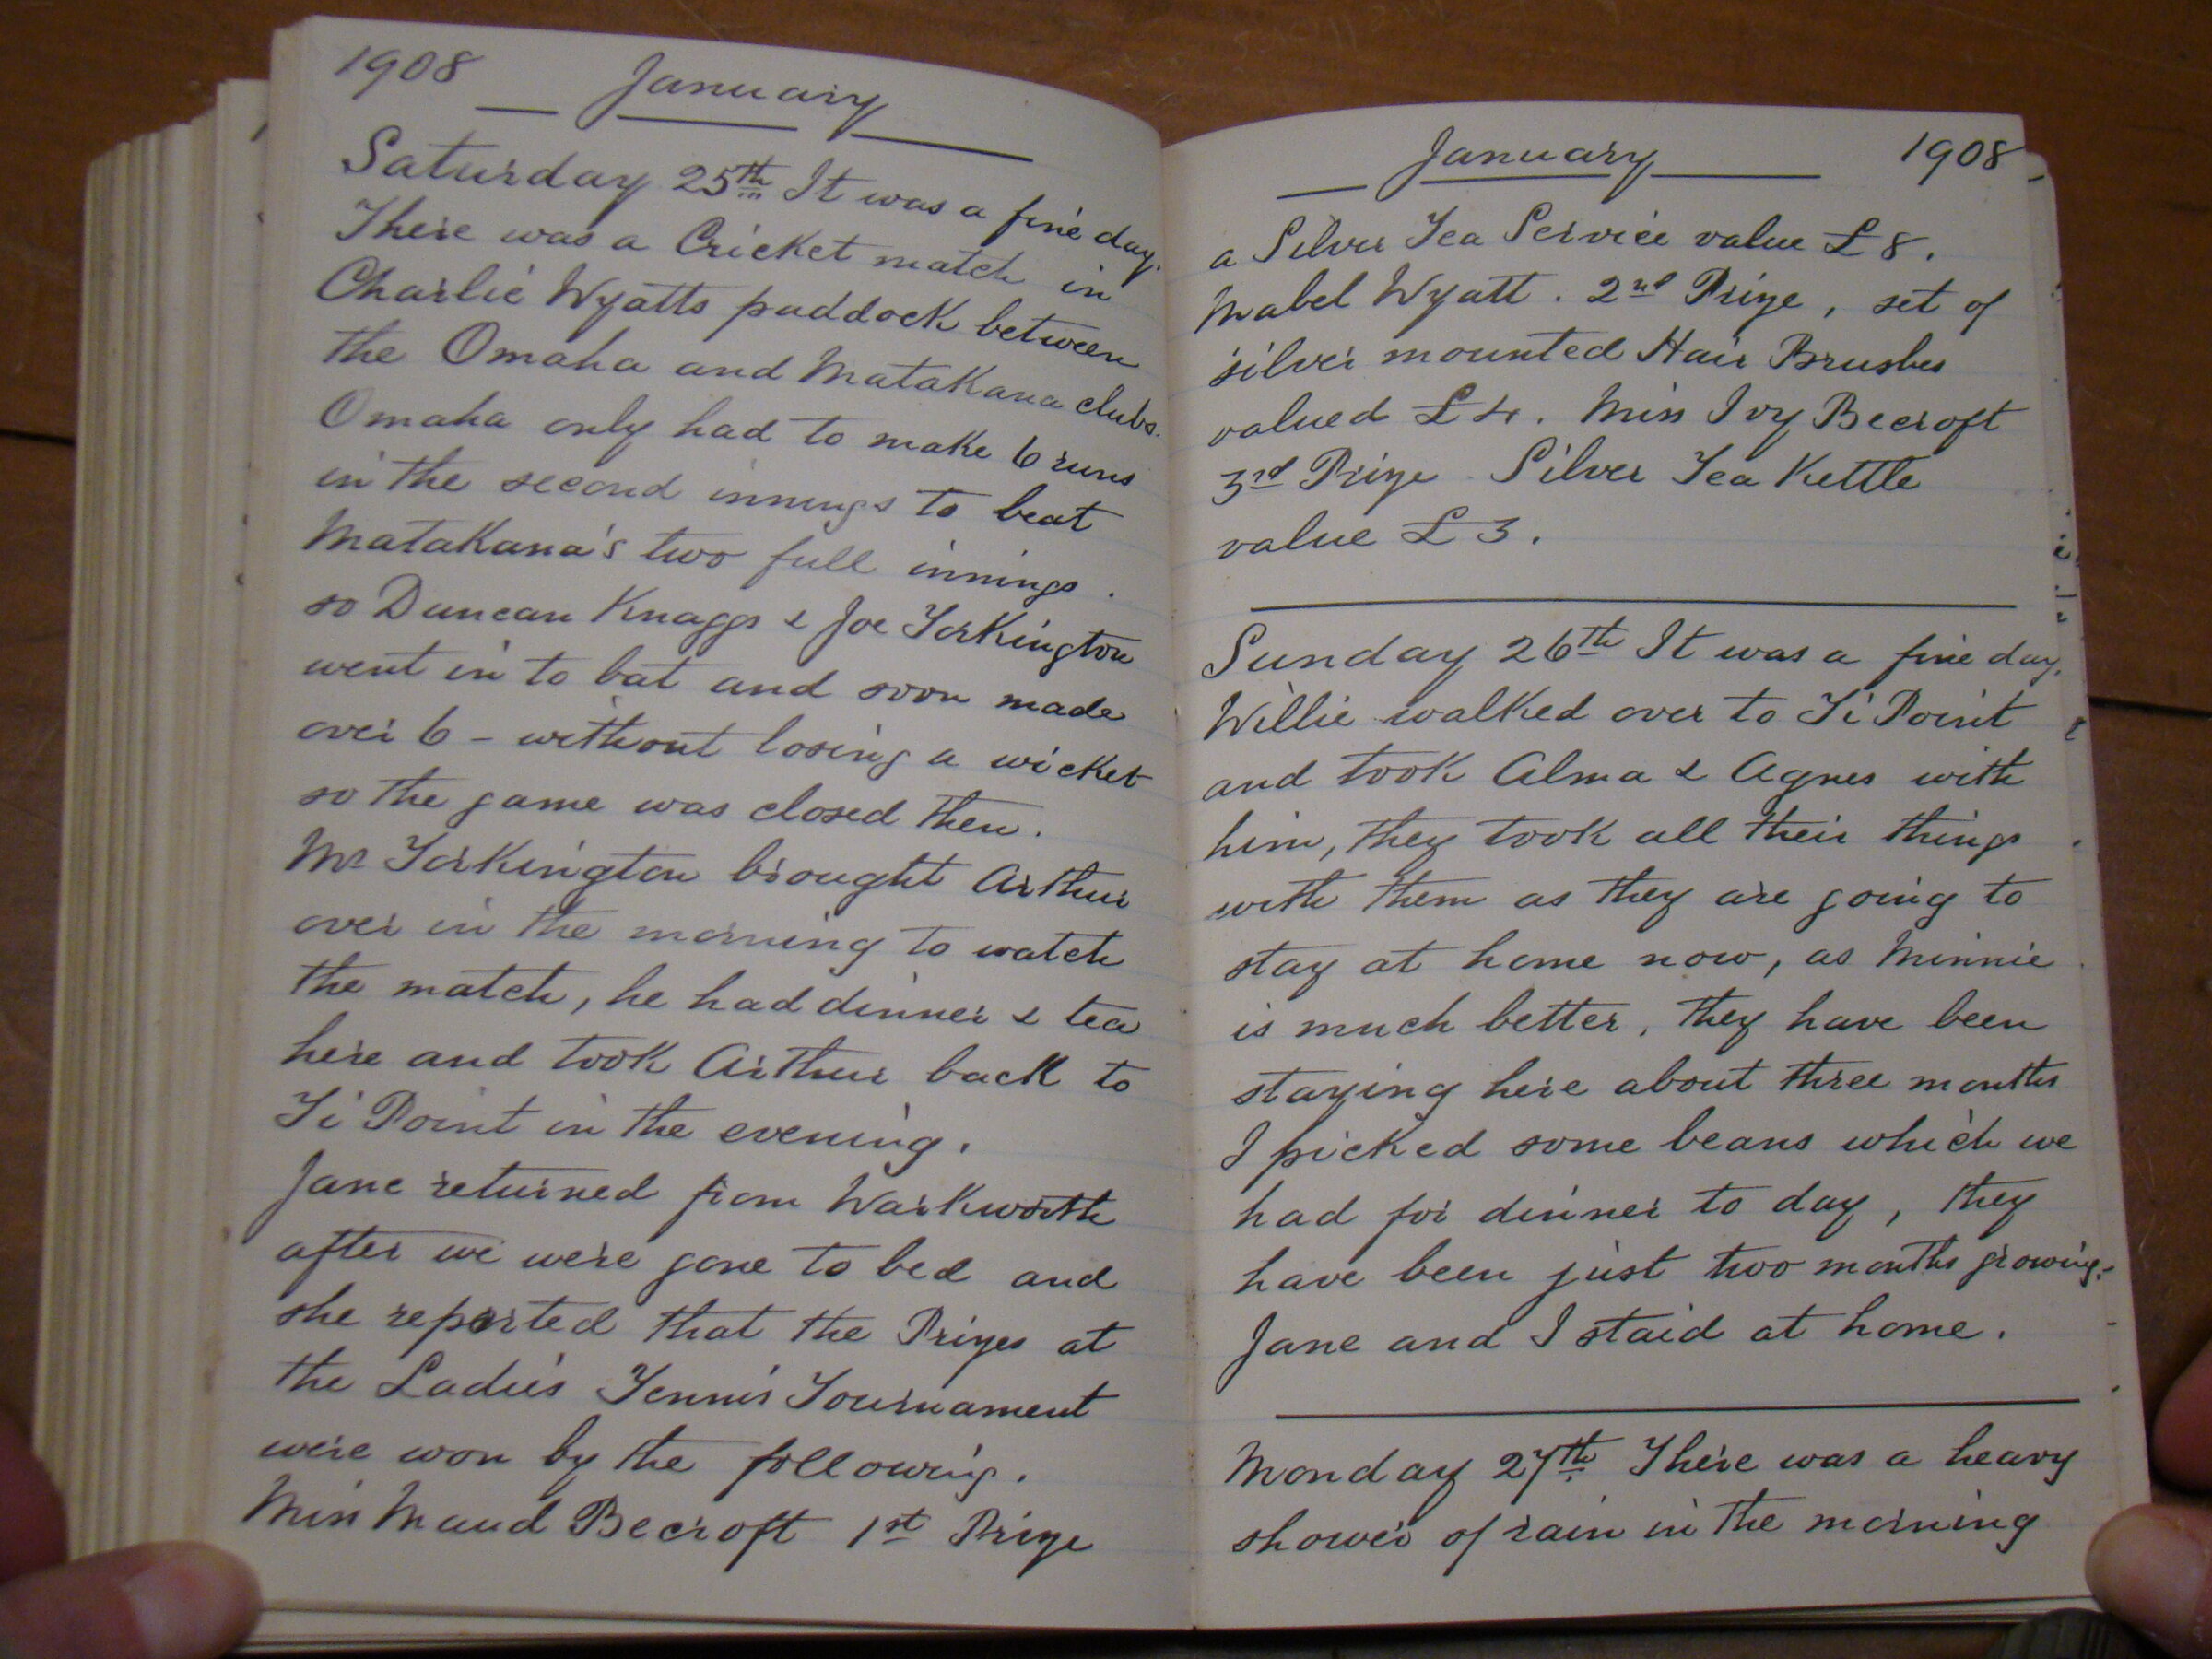 1908 January
Saturday 25th It was a fine day.
There was a Cricket match in
Charlie Wyatts paddock between
the Omaha and Matakana clubs.
Omaha only had to make 6 runs
in the second innings to beat
Matakana's two full innings.
so Duncan Knaggs & Joe Torkington
went in to bat and soon made
over 6 - without losing a wicket
so the game was closed then.
Mr Torkington brought Arthur
over in the morning to watch
the match, he had dinner & tea
here and took Arthur back to
Ti Point in the evening.
Jane returned from Warkworth
after we were gone to bed and
she reported that the Prizes at
the Ladies Tennis Tournament
were won by the following.
Miss Maud Becroft 1st Prize
January 1908
a Silver Tea Service value £8.
Mabel Wyatt. 2nd Prize, set of
silver mounted Hair Brushes
valued £4. Miss Ivy Becroft
3rd Prize Silver Tea Kettle
value £3.
Sunday 26th It was a fine day.
Willie walked over to Ti Point
and took Alma & Agnes with
him, they took all their things
with them as they are going to
stay at home now, as Minnie
is much better, they have been
staying here about three months
I picked some beans which we
had for dinner to day, they
have been just two months growing.
Jane and I staid at home.
Monday 27th There was a heavy
shower of rain in the morning